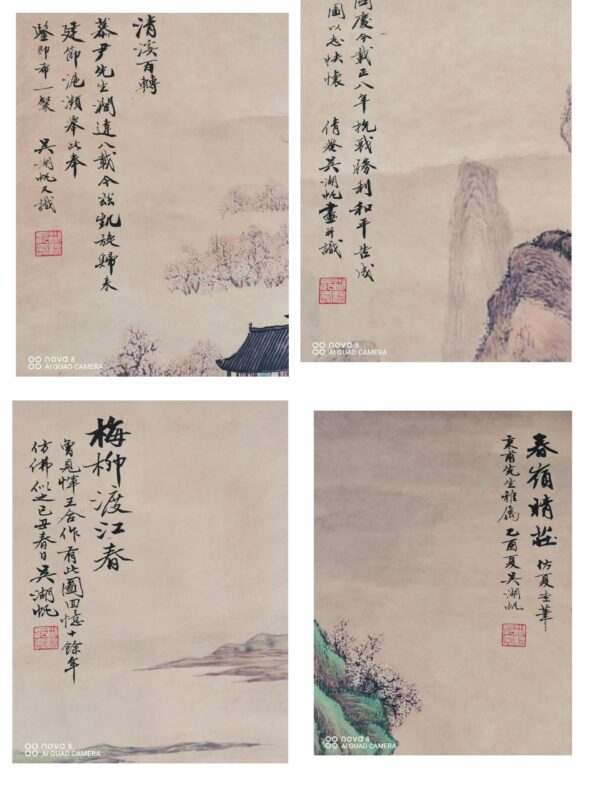 清溪百轉
慕尹先生闊違八載今茲凱旋歸來
建節滬瀕舉此奉
鑒即希一粲 吳湖帆又識
nova 8
AI QUAD CAMERA
國慶今載正八年抗戰勝利和平告成
圖以志快懷 倩盦吳湖帆畫并識
nova 8
AI QUAD CAMERA
梅柳渡江春
曾見惲王合作有此圖回憶十餘年
仿佛似之己丑春日吳湖帆
nova 8
AI QUAD CAMERA
春嶺晴莊 仿夏圭筆
秉甫先生雅屬 乙酉夏吳湖帆
nova 8
AI QUAD CAMERA